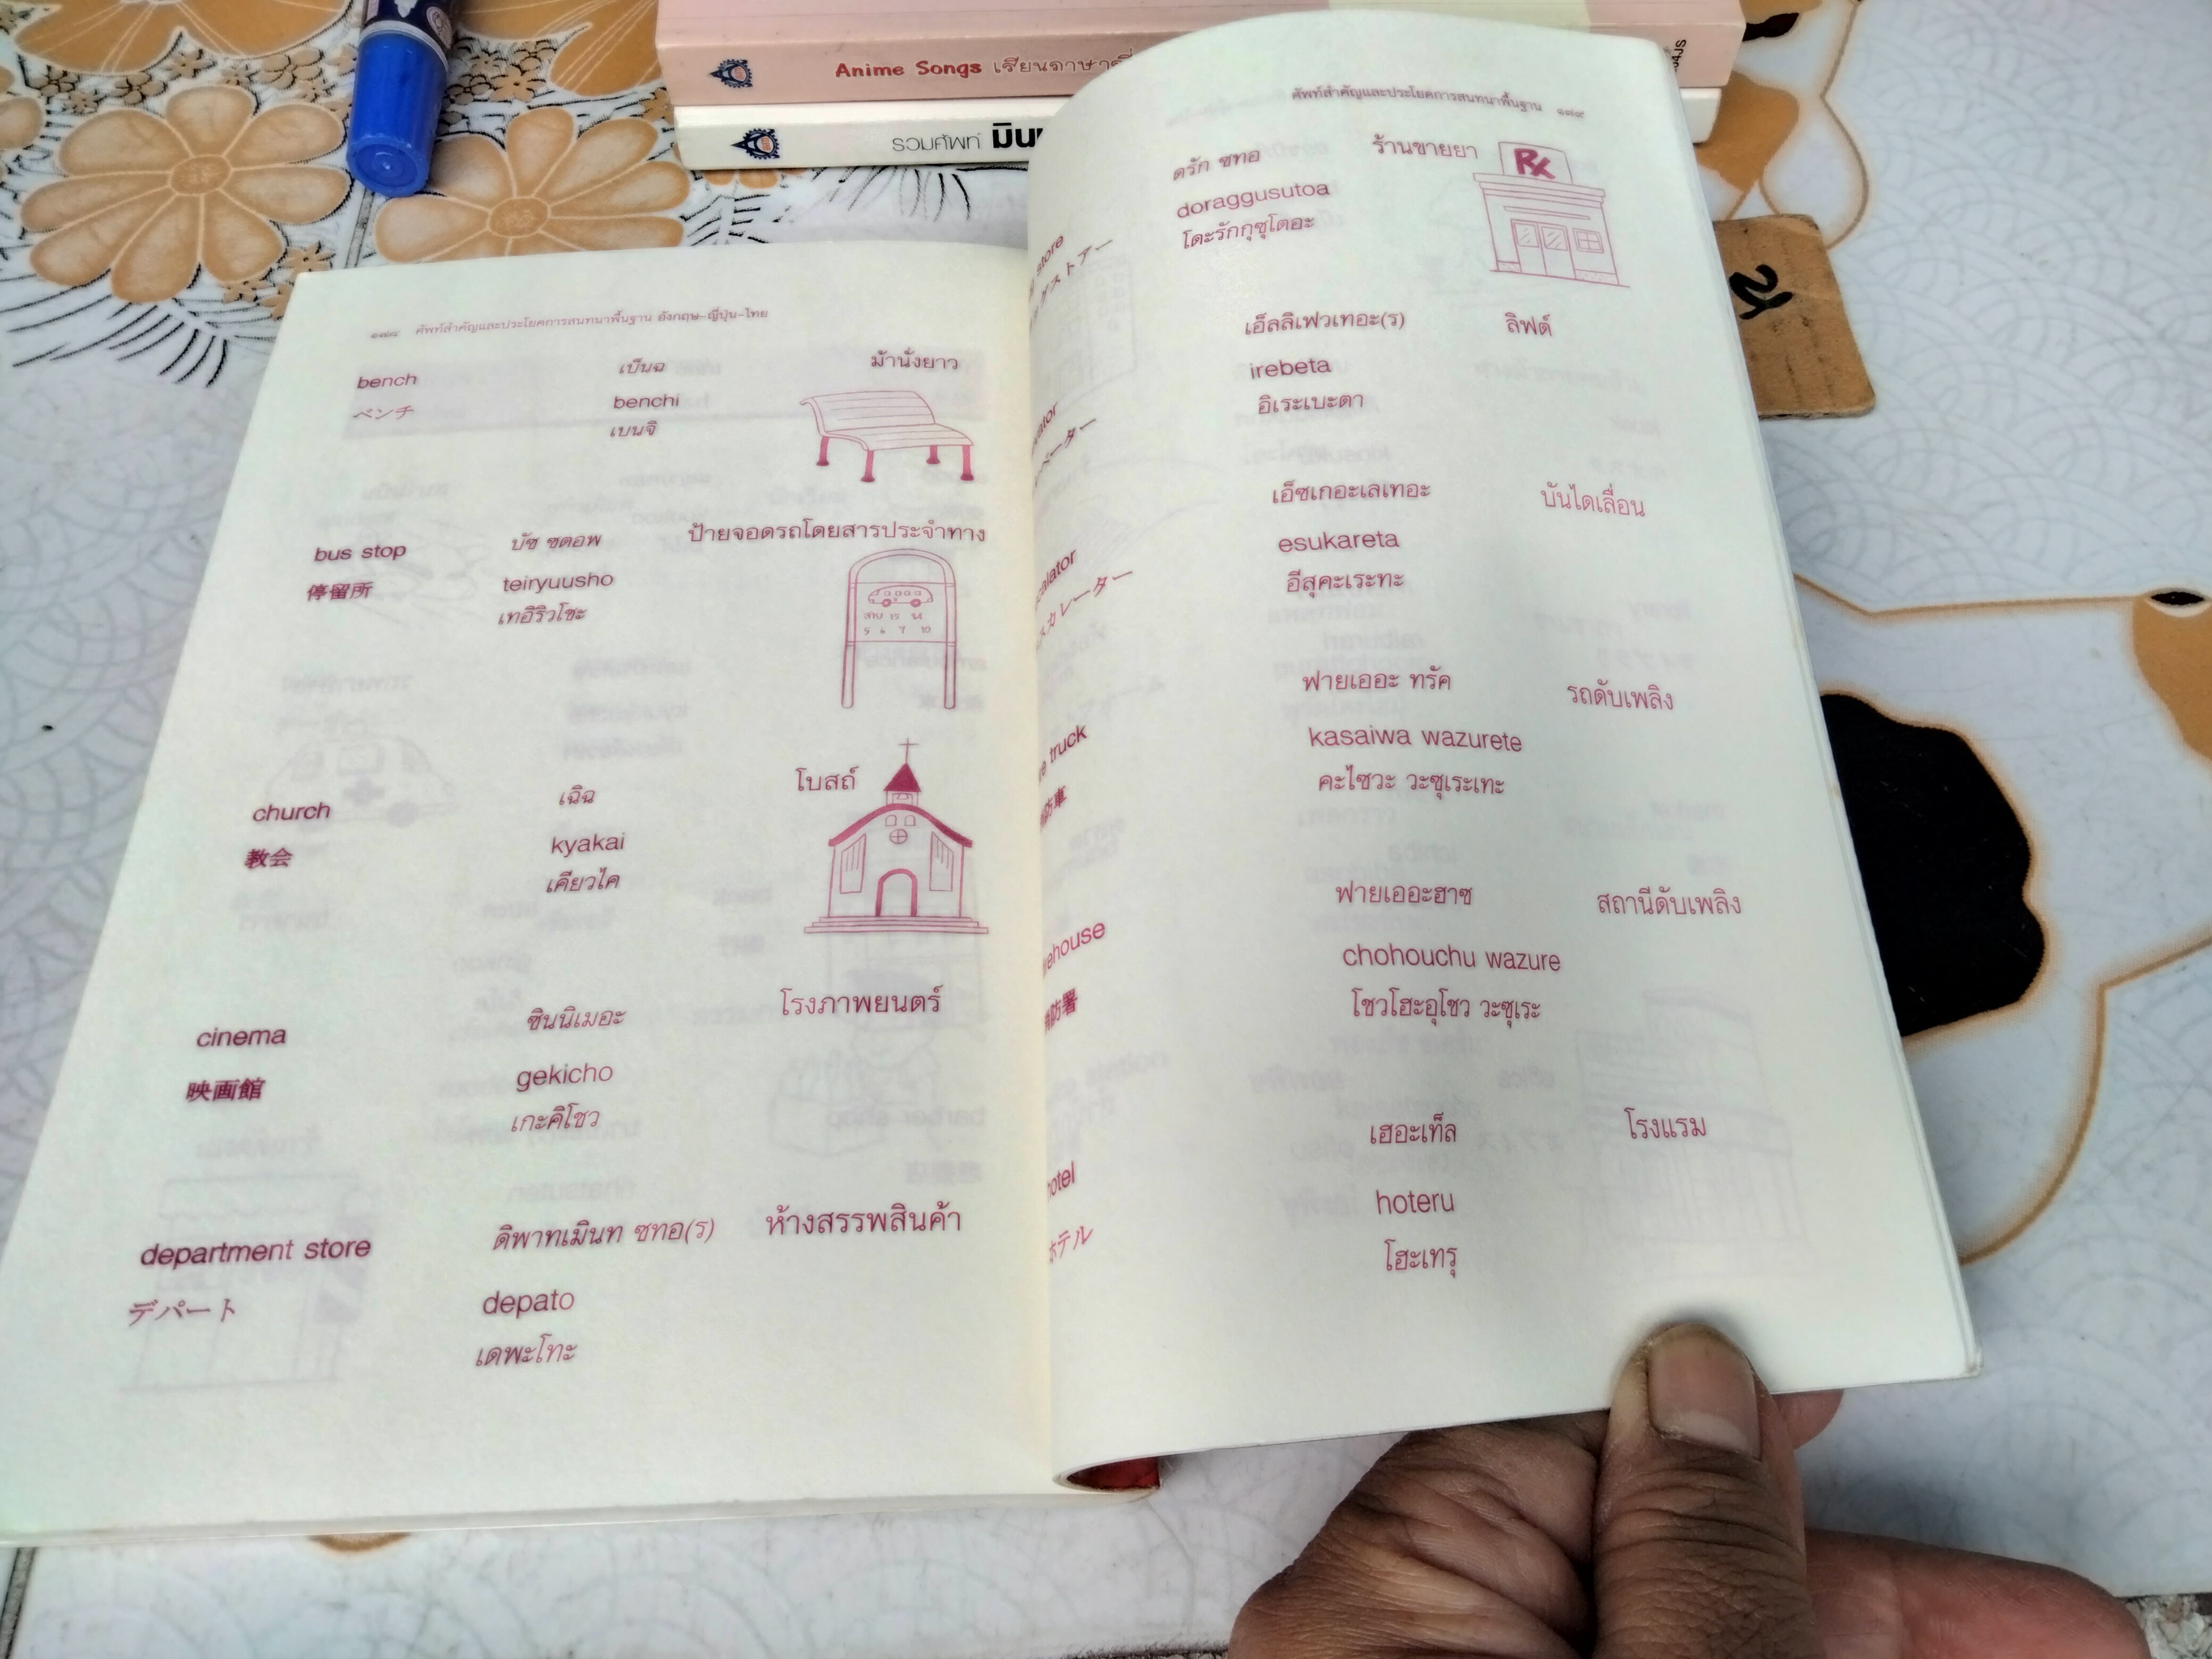 Anime Songs
รวมศัพท์
๑๗๘ ศัพท์สำคัญและประโยคการสนทนาพื้นฐาน อังกฤษ-ญี่ปุ่น-ไทย
bench เบ็นฉ ม้านั่งยาว
ベンチ benchi
เบนจิ
bus stop บัซ ซตอพ ป้ายจอดรถโดยสารประจำทาง
停留所 teiryuusho
เทอิริวโชะ
สาย 15 14
5 6 7 10
church เฉิฉ โบสถ์
教会 kyakai
เคียวไค
cinema ซินนิเมอะ โรงภาพยนตร์
映画館 gekicho
เกะคิโชว
department store ดิพาทเมินท ซทอ(ร) ห้างสรรพสินค้า
デパート depato
เดพะโทะ
ศัพท์สำคัญและประโยคการสนทนาพื้นฐาน ๑๗๙
store ดรัก ซทอ ร้านขายยา
ストアー doraggusutoa
โดะรักกุซุโตอะ
RX
เอ็ลลิเฟวเทอะ(ร) ลิฟต์
ベーター irebeta
อิเระเบะตา
เอ็ซเกอะเลเทอะ บันไดเลื่อน
カレーター esukareta
อีสุคะเระทะ
truck ฟายเออะ ทรัค รถดับเพลิง
防車 kasaiwa wazurete
คะไซวะ วะซุเระเทะ
ฟายเออะฮาซ สถานีดับเพลิง
防署 chohouchu wazure
โชวโฮะอุโชว วะซุเระ
เฮอะเท็ล โรงแรม
ホテル hoteru
โฮะเทรุ